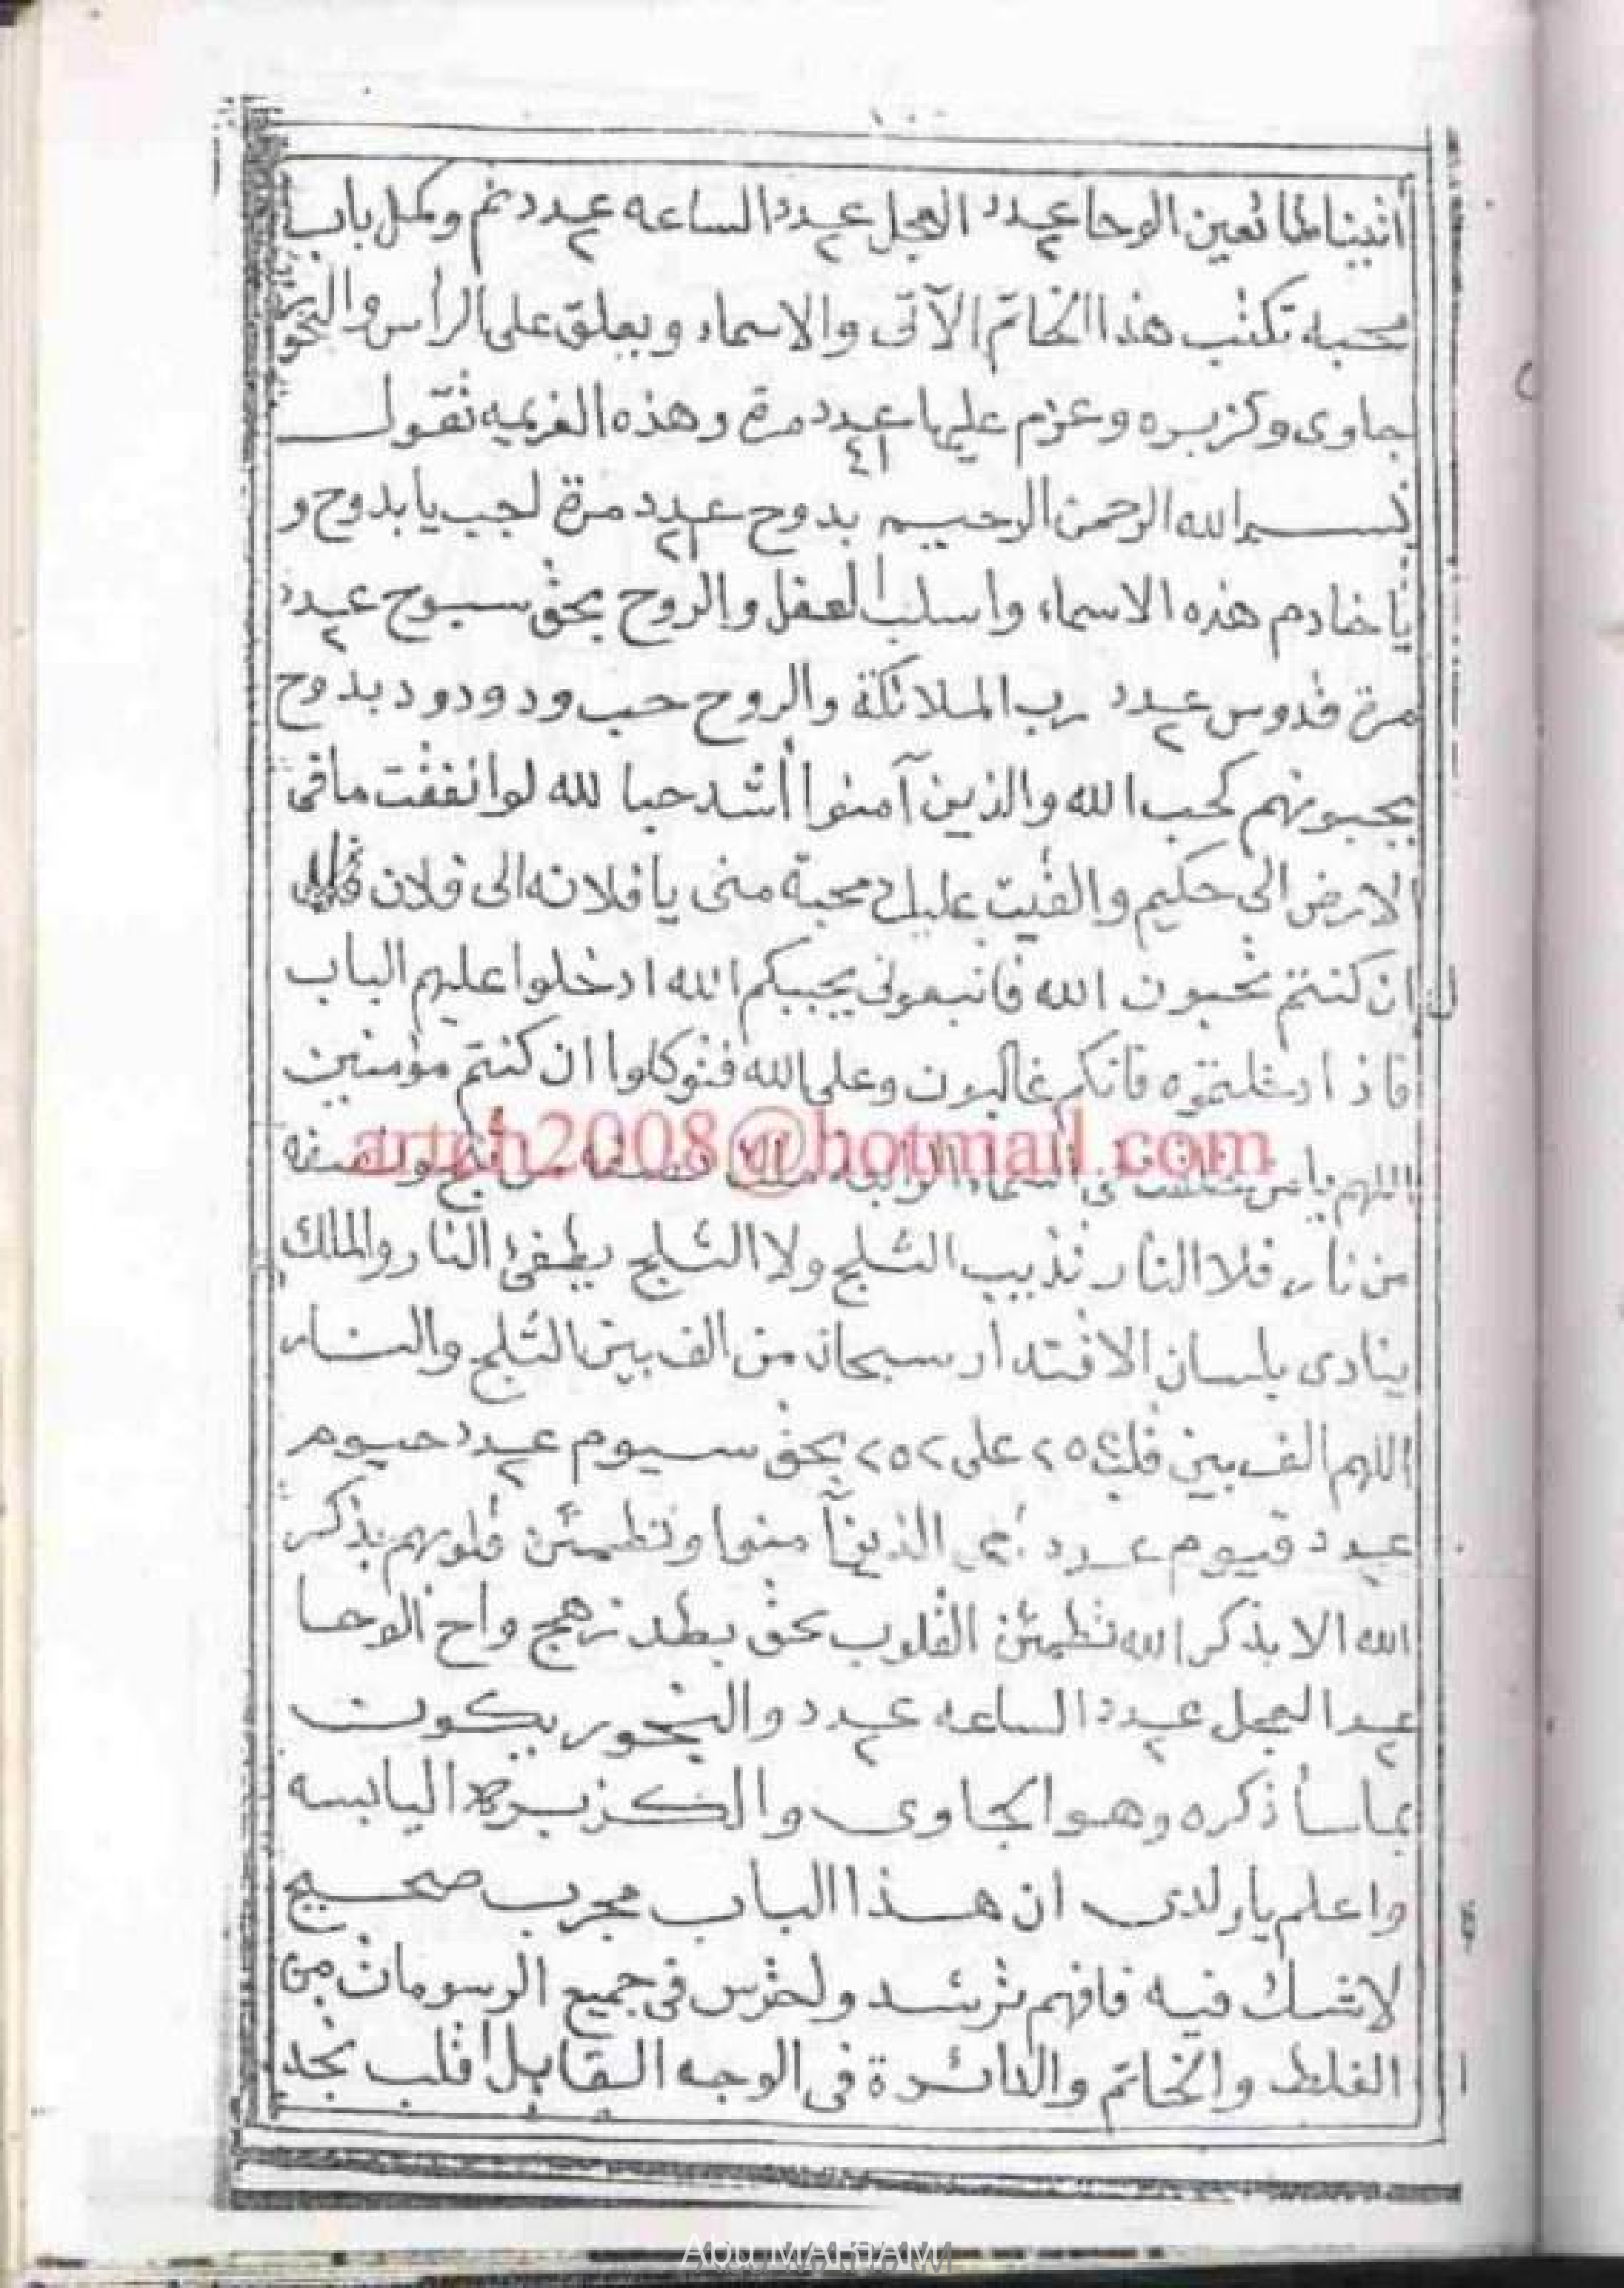 ١٠٠
أتينا طائعين الوحا عدد٢ العجل عدد٢ الساعه عدد٢ تم وكمل باب
محبه تكتب هذا الخاتم الآتى والاسماء ويعلق على الرأس والبخور
جاوى وكزبره وعزم عليها عدد٤١ مرة وهذه العزيمه تقول
بسم الله الرحمن الرحيم بدوح عدد٢١ مرة أجب يا بدوح و
ياخادم هذه الاسماء واسلب العقل والروح بحق سبوح عدد٢
مرة قدوس عدد٢ رب الملائكة والروح حب ودود ودود بدوح
يحبونهم كحب الله والذين آمنوا أشد حبا لله لو انفقت مافى
الارض الى حكيم والقيت عليك محبة منى يا فلانه الى فلان
ان كنتم تحبون الله فاتبعونى يحببكم الله ادخلوا عليهم الباب
فاذا دخلتموه فانكم غالبون وعلى الله فتوكلوا ان كنتم مؤمنين
artch2008@hotmail.com
اللهم يامن خلقت فى السماء الرابعه ملك نصفه من ثلج ونصفه
من نار فلا النار تذيب الثلج ولا الثلج يطفئ النار والملك
ينادى بلسان الاقتدار سبحان من الف بين الثلج والنار
اللهم الف بين قلب ٢٥٤ على ٢٥٢ بحق سيوم عدد٢ حيوم
عدد قيوم عدد الذين آمنوا وتطمئن قلوبهم بذكر
الله الا بذكر الله تطمئن القلوب بحق بطد زهج واح الوحا
عدد٢ العجل عدد٢ الساعه عدد٢ والبخور يكون
بما سأذكره وهو الجاوى والكزبرة اليابسه
واعلم ياولدى ان هذا الباب مجرب صحيح
لاشك فيه فافهم ترشد ولحترس فى جميع الرسومات من
الغلط والخاتم والدائرة فى الوجه القابل أقلب تجد
Abu MARIAM